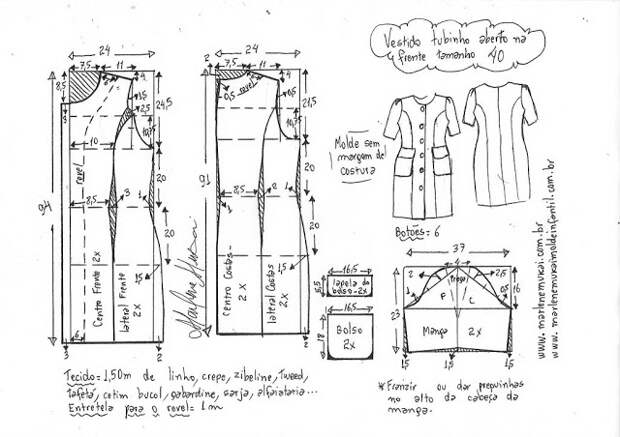 Vestido tubinho aberto na
frente tamanho 40
24
7,5
11
4
8,5
3
1,5
2,5
24,5
10,75
10
20
revel
94
8,5
3
1
20
1,5
Centro Frente 2x
lateral Frente
2x
6
3
2
2
24
7,5
11
4
0,5
revel
0,5
21,5
10,75
20
91
8,5
2
1
20
1,5
Centro Costas-
2x
lateral Costas
2x
2
Molde sem
margem de
costura
Botões= 6
16,5
5,5
tapela do
bolso-2x
16,5
18
Bolso
2x
37
4
2
Pregas
2,5
0,5
16
F
C
23
Manga
2x
1,5
1,5
1,5
www.marlenemukai.com.br
www.marlenemukaimoldeinfantil.com.br
Tecido= 1,50m de linho, crepe, zibeline, Tweed,
tafetá, cetim bucol, gabardine, sarja, alfaiataria...
Entretela para o revel= 1m
*Franzir ou dar preguinhas
no alto da cabeça da
manga.